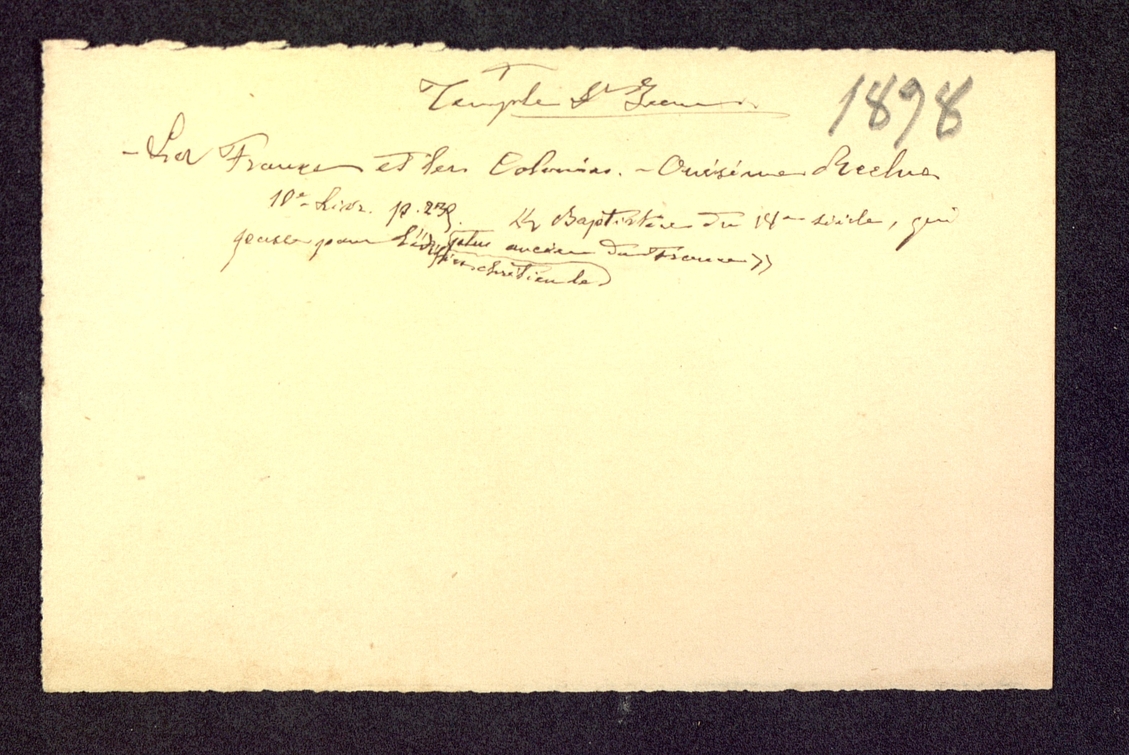 Temple St Jean
1898
- La France et ses Colonies. - Onésime Reclus
10e Livr. p. 239. « Baptistère du 14me siècle, qui
passe pour l'édifice plus ancien de France »
chrétien le